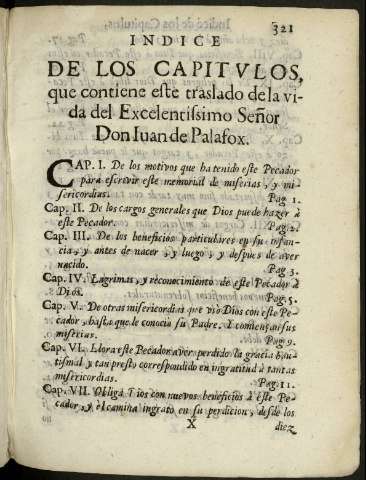 321
INDICE
DE LOS CAPITVLOS,
que contiene este traslado de la vi-
da del Excelentissimo Señor
Don Iuan de Palafox.
CAP. I. De los motivos que ha tenido este Pecador
para escrivir este memorial de miserias, y mi-
sericordias. Pag 1.
Cap. II. De los cargos generales que Dios puede hazer à
este Pecador. Pag. 2.
Cap. III. De los beneficios particulares en su infan-
cia, y antes de nacer, y luego, y despues de aver
nacido. Pag 3.
Cap. IV. Lagrimas, y reconocimiento de este Pecador à
Dios. Pag. 5.
Cap. V. De otras misericordias que vsò Dios con este Pe-
cador, hasta que le conociò su Padre. Y comiençan sus
miserias. Pag 9.
Cap. VI. Llora este Pecador aver perdido la gracia bau-
tismal y tan presto correspondido en ingratitud à tantas
misericordias. Pag. 11.
Cap. VII. Obliga Dios con nuevos beneficios à este Pe-
cador, y èl camina ingrato en su perdicion, desde los
X diez